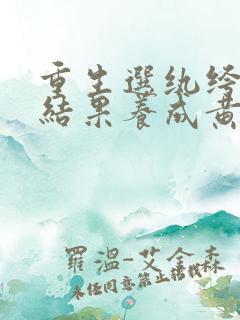 重生選紈絝
結果養成黃
羅溫-艾金森
未經同意禁止轉載